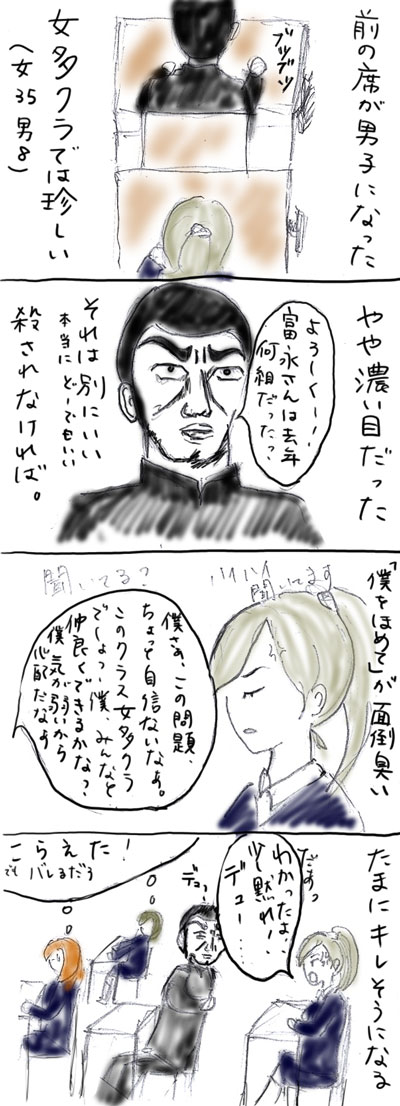 前の席が男子になった
ブツブツ
女多クラでは珍しい
（女35男8）
やや濃い目だった
よろしくー！
富永さんは去年
何組だった？
それは別にいい
本当にどーでもいい
殺されなければ。
「僕をほめて」が面倒臭い
ハイハイ
聞いてます
聞いてる？
僕さあ、この問題、
ちょっと自信ないなあ。
このクラス女多クラ
でしょっ、僕、みんなと
仲良くできるかなっ？
僕気が弱いから
心配だなあ
たまにキレそうになる
だぁっ
わかったよ
少し黙れ！、
デュー……
デュっ
こらえた！
でもバレるだろ